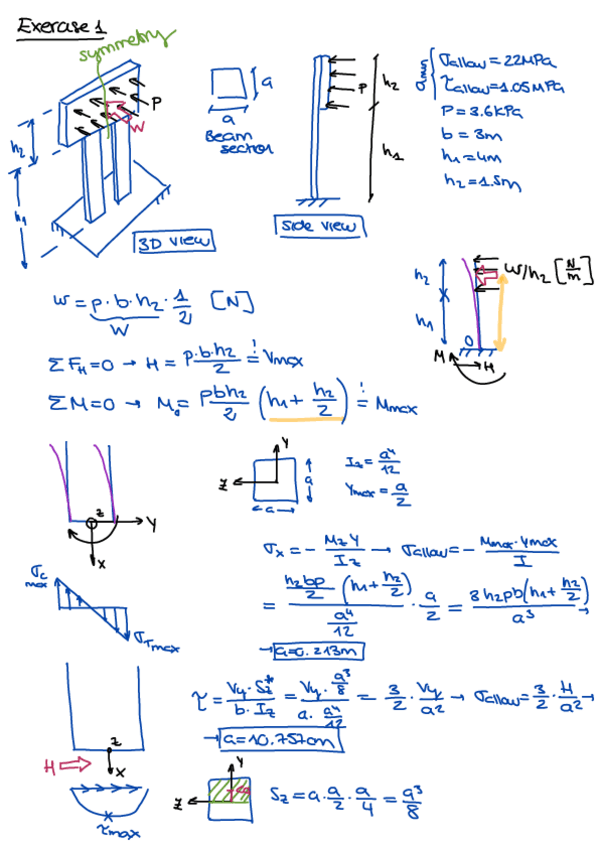 Exercise 1
symmetry
P
W
h2
h1
3D view
a
a
Beam
section
P
h2
h1
Side view
amin
σallow = 22MPa
τallow = 1.05MPa
P = 3.6kPa
b = 3m
h1 = 4m
h2 = 1.5m
W = p·b·h2·1/2 [N]
W
h2
h1
W/h2 [N/m]
O
M
H
ΣFH = 0 → H = p·b·h2/2 =! Vmax
ΣM = 0 → Mo = pbh2/2 (h1 + h2/2) =! Mmax
z
Y
X
Y
z
a
a
Iz = a⁴/12
Ymax = a/2
σx = - Mz Y/Iz → σallow = - Mmax·Ymax/I
= (h2bp/2 (h1 + h2/2))/(a⁴/12) · a/2 = 3h2pb(h1 + h2/2)/a³ →
→ a = 0.213m
σc max
σT max
τ = Vy·Sz*/(b·Iz) = (Vy·a³/8)/(a·a⁴/12) = 3/2 · Vy/a² → σallow = 3/2 · H/a² →
→ a = 10.757cm
z
X
H
τmax
Y
z
Sz = a·a/2·a/4 = a³/8